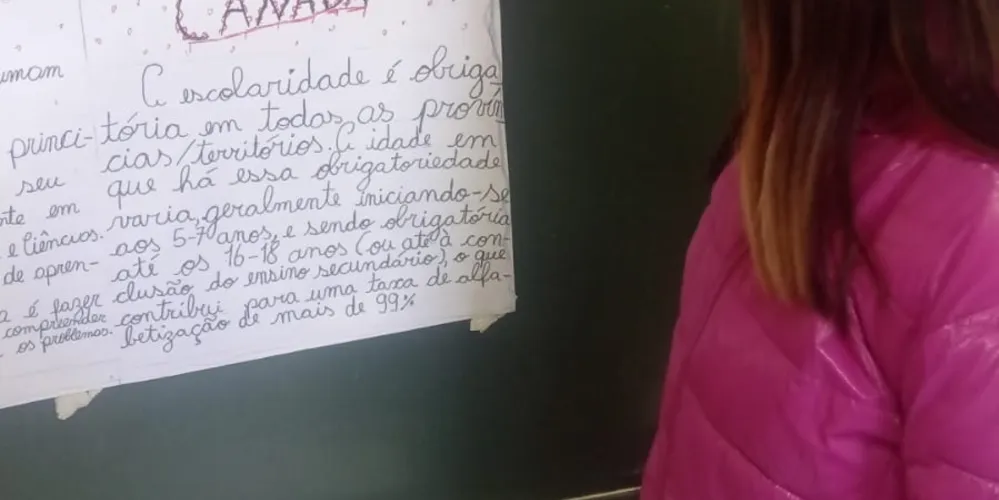 CANADA
A escolaridade é obriga
tória em todas as provín
cias/territórios. A idade em
que há essa obrigatoriedade
varia, geralmente iniciando-se
aos 5-7 anos, e sendo obrigatória
até os 16-18 anos (ou até à con-
clusão do ensino secundário), o que
contribui para uma taxa de alfa-
betização de mais de 99%
princi-
seu
em
e Ciências.
de apren-
a é fazer
compreender
os problemas.